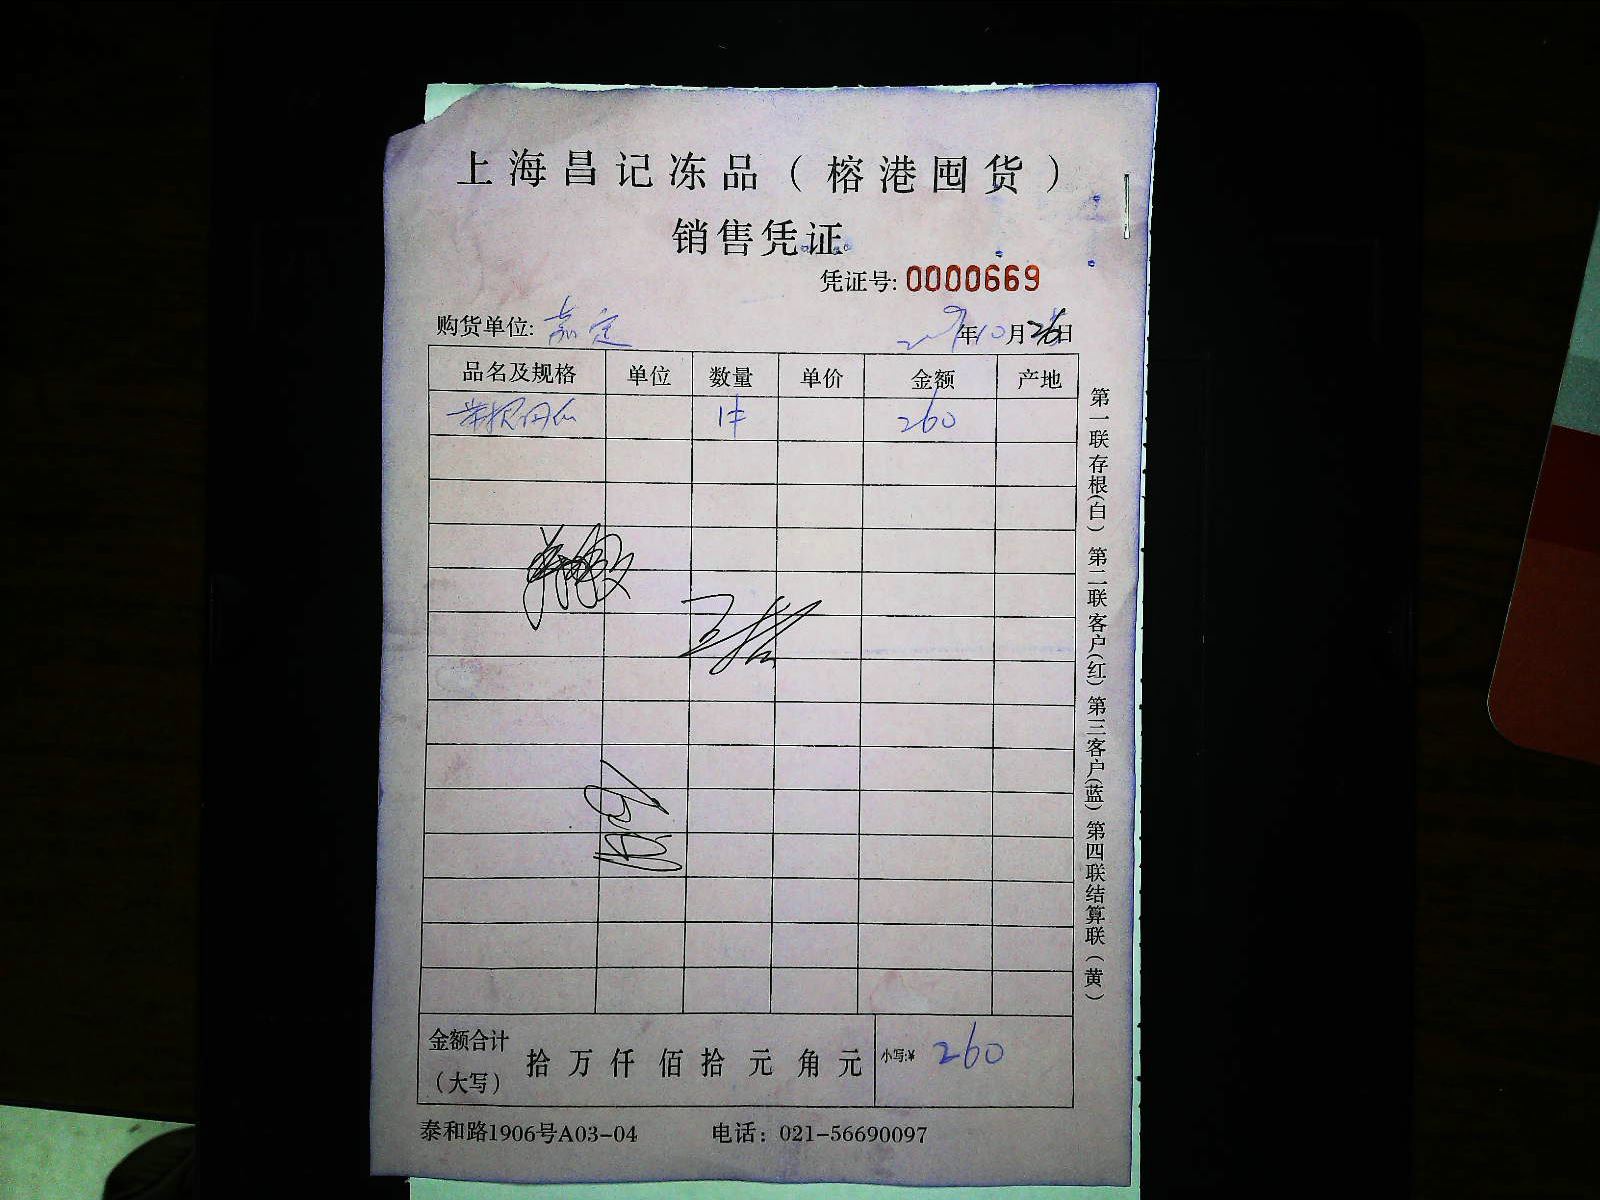 上海昌记冻品（榕港囤货）
销售凭证
凭证号: 0000669
购货单位: 嘉定
年10月26日
品名及规格 单位 数量 单价 金额 产地
1件 260
金额合计（大写） 拾 万 仟 佰 拾 元 角 元 小写:¥ 260
泰和路1906号A03-04 电话：021-56690097
第一联存根(白) 第二联客户(红) 第三客户(蓝) 第四联结算联(黄)